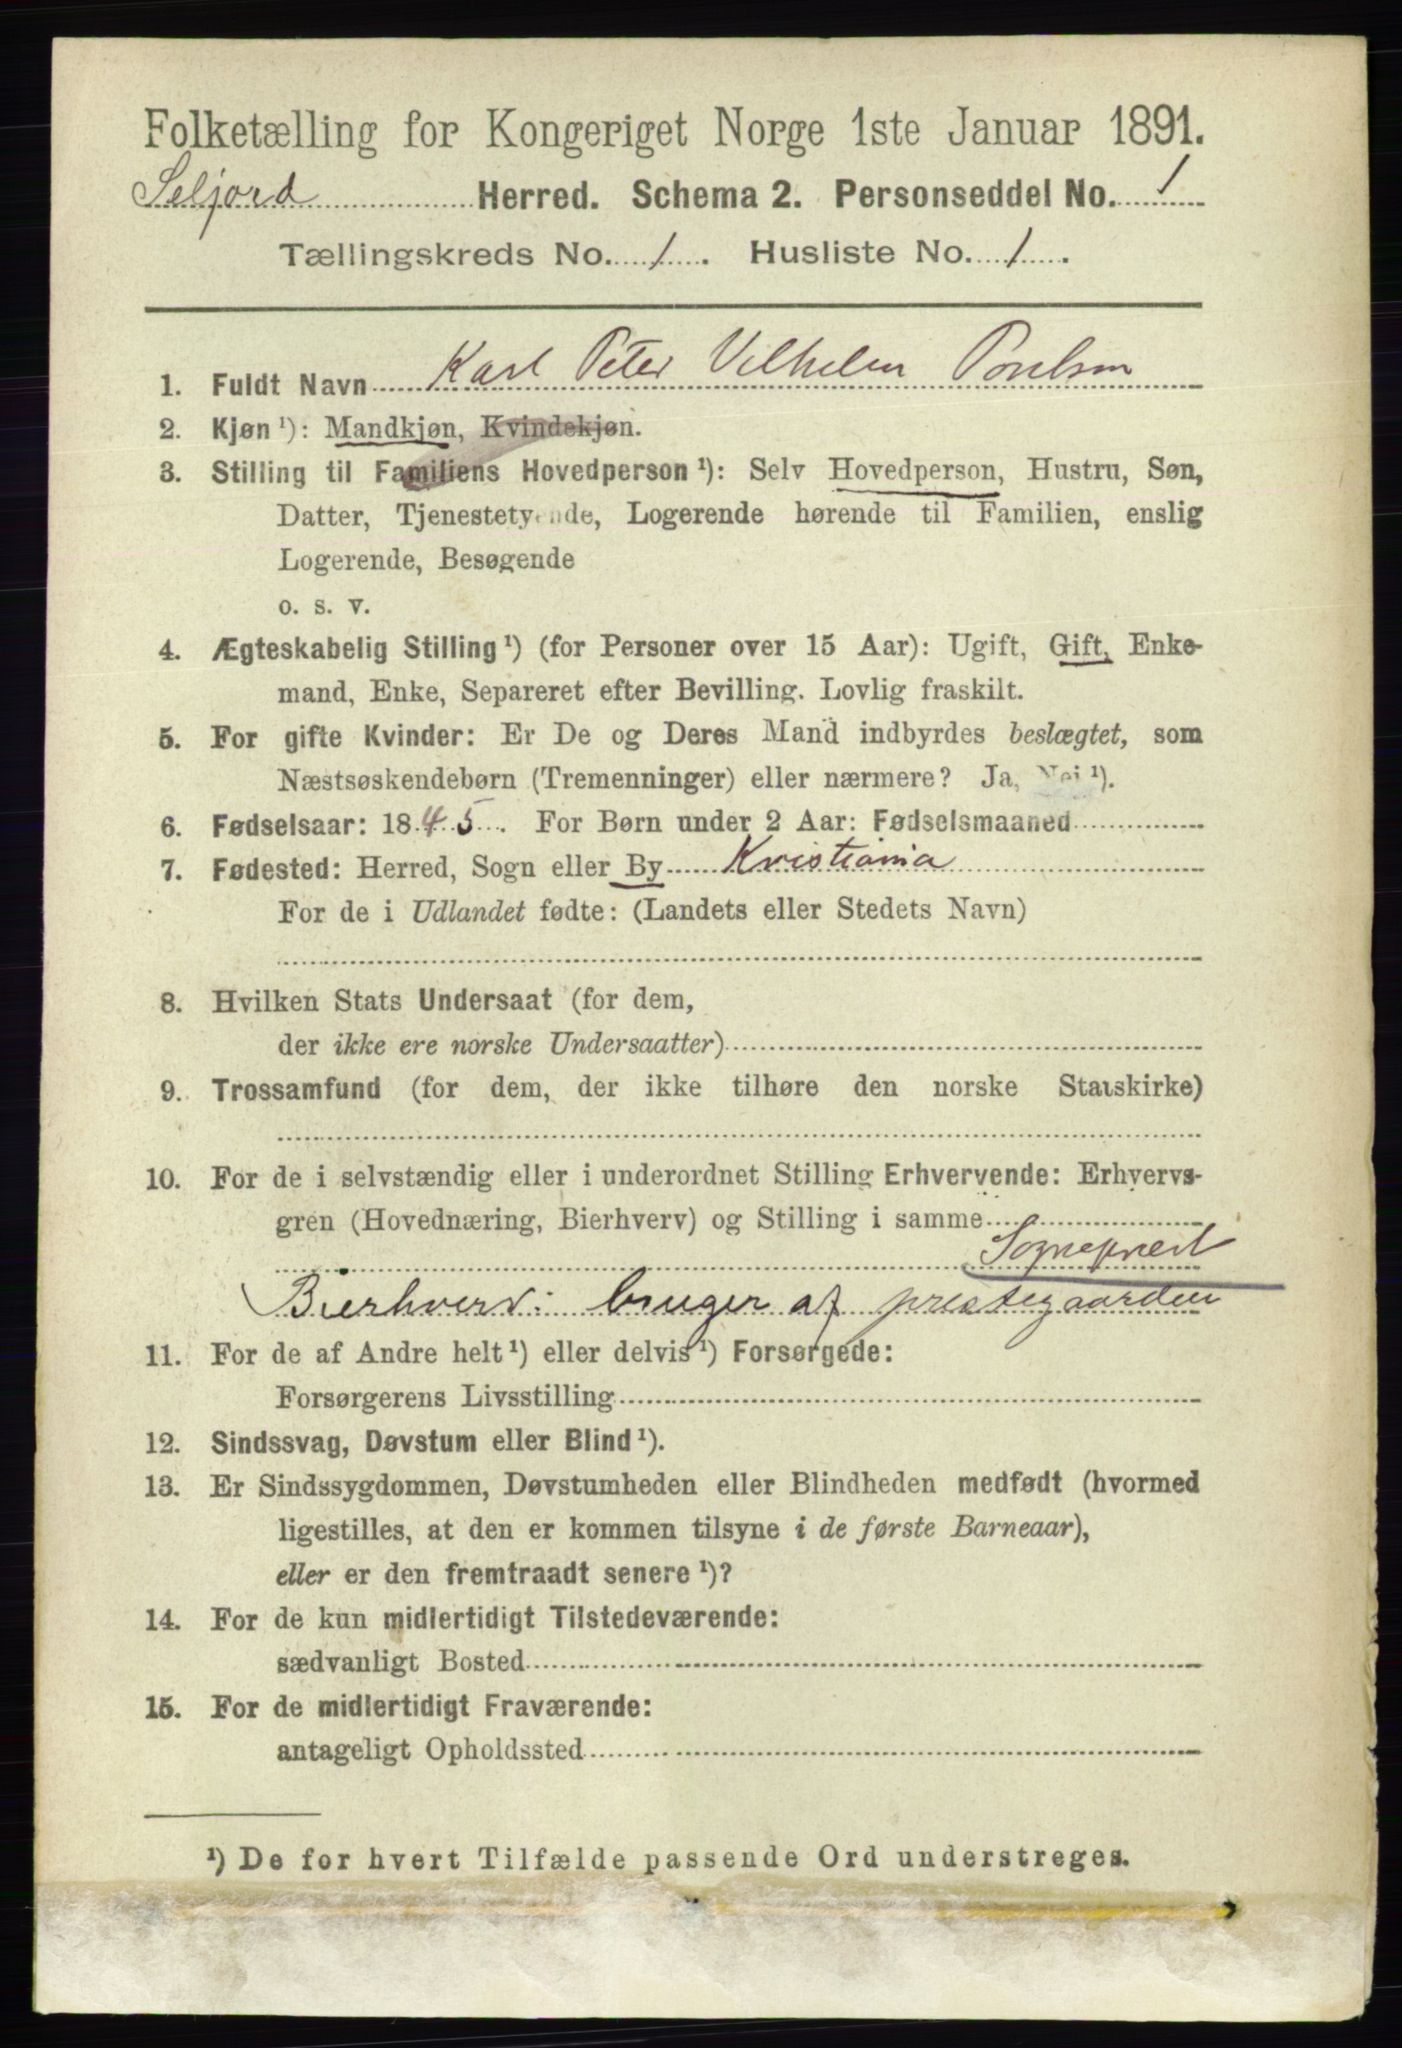 Folketælling for Kongeriget Norge 1ste Januar 1891.
Seljord Herred. Schema 2. Personseddel No. 1
Tællingskreds No. 1. Husliste No. 1.
1. Fuldt Navn Karl Peter Vilhelm
2. Kjøn ¹): Mandkjøn, Kvindekjøn.
3. Stilling til Familiens Hovedperson ¹): Selv Hovedperson, Hustru, Søn,
Datter, Tjenestetyende, Logerende hørende til Familien, enslig
Logerende, Besøgende
o. s. v.
4. Ægteskabelig Stilling ¹) (for Personer over 15 Aar): Ugift, Gift, Enke-
mand, Enke, Separeret efter Bevilling. Lovlig fraskilt.
5. For gifte Kvinder: Er De og Deres Mand indbyrdes beslægtet, som
Næstsøskendebørn (Tremenninger) eller nærmere? Ja, Nei ¹).
6. Fødselsaar: 1845. For Børn under 2 Aar: Fødselsmaaned
7. Fødested: Herred, Sogn eller By Kristiania
For de i Udlandet fødte: (Landets eller Stedets Navn)
8. Hvilken Stats Undersaat (for dem,
der ikke ere norske Undersaatter)
9. Trossamfund (for dem, der ikke tilhøre den norske Statskirke)
10. For de i selvstændig eller i underordnet Stilling Erhvervende: Erhvervs-
gren (Hovednæring, Bierhverv) og Stilling i samme
Sogneprest
Bierhverv: bruger af prestegaarden
11. For de af Andre helt ¹) eller delvis ¹) Forsørgede:
Forsørgerens Livsstilling
12. Sindssvag, Døvstum eller Blind ¹).
13. Er Sindssygdommen, Døvstumheden eller Blindheden medfødt (hvormed
ligestilles, at den er kommen tilsyne i de første Barneaar),
eller er den fremtraadt senere ¹)?
14. For de kun midlertidigt Tilstedeværende:
sædvanligt Bosted
15. For de midlertidigt Fraværende:
antageligt Opholdssted
¹) De for hvert Tilfælde passende Ord understreges.